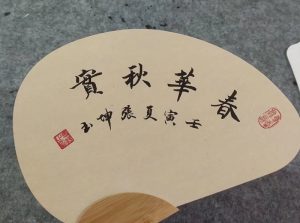 春華秋實
壬寅夏張坤玉